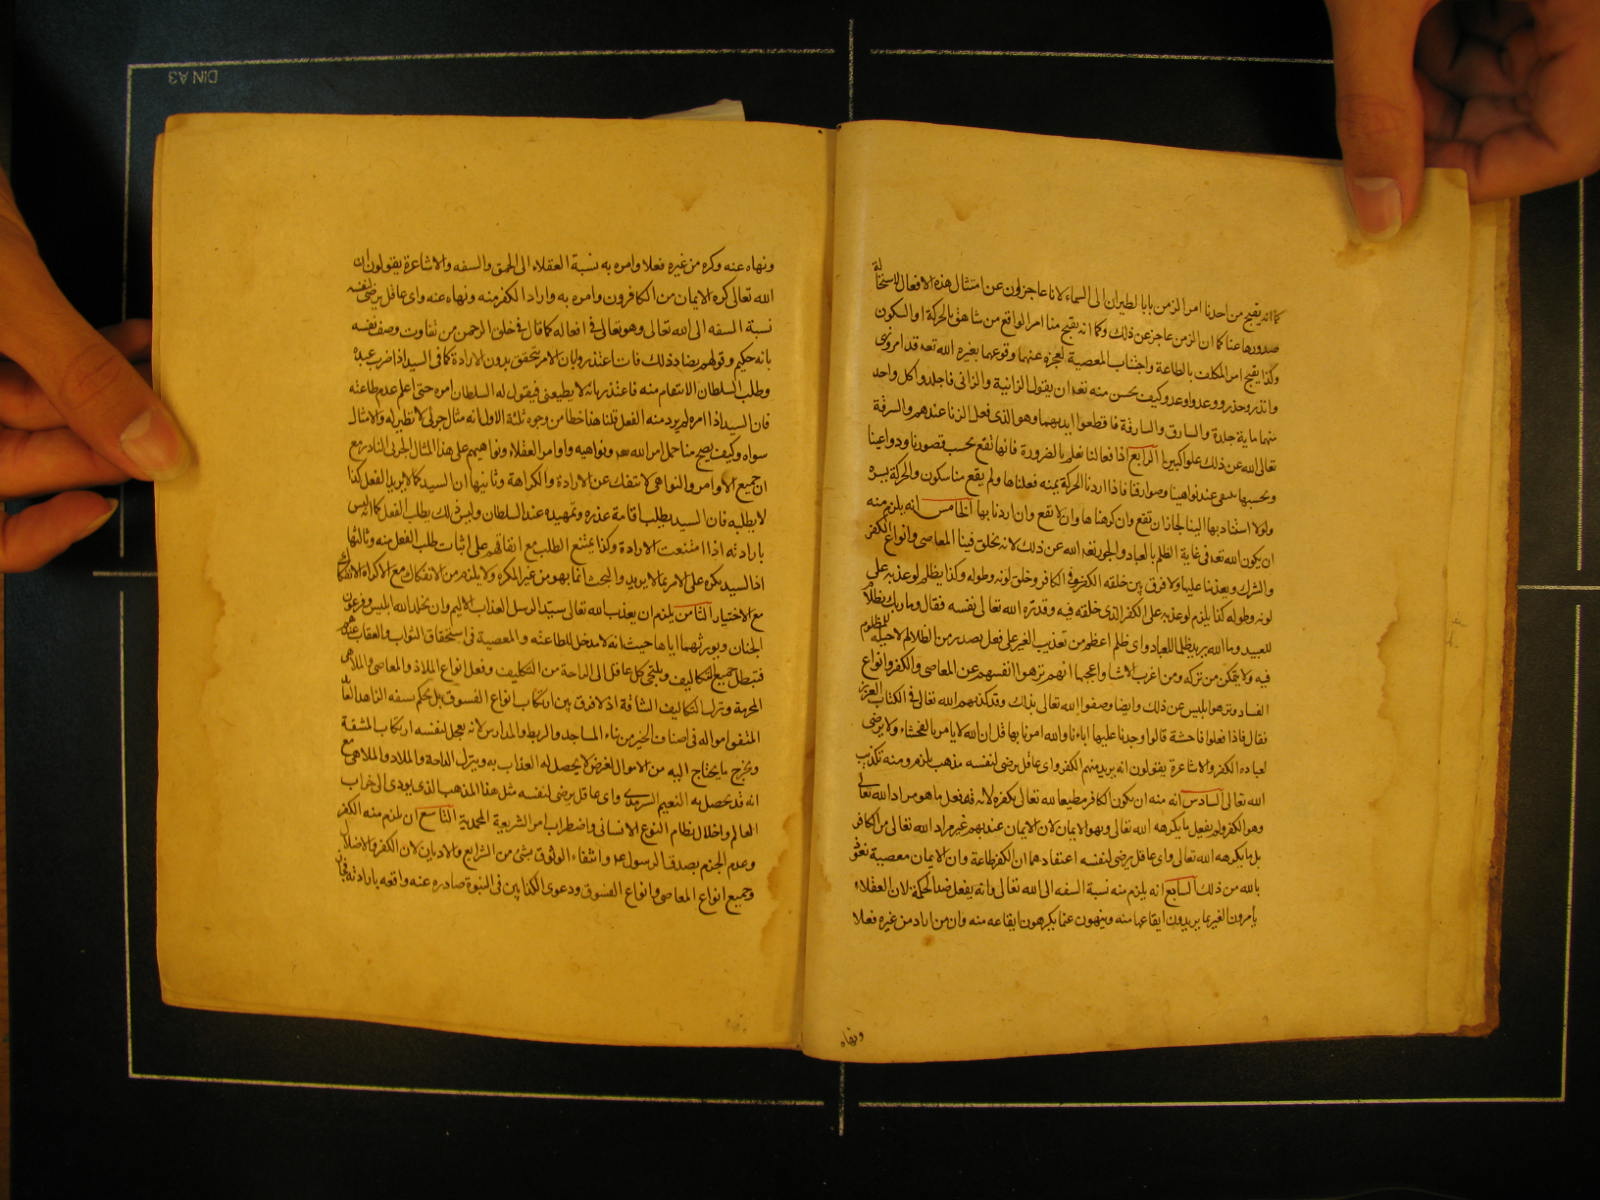 كما انه يقبح من احدنا امر الزمن بابا لطيران الى السماء لانا عاجزون عن امتثال هذه الافعال لاستحالة
صدورها عنا كما ان الزمن عاجز عن ذلك وكما انه يقبح منا امر الواقع من شاهق بالحركة او السكون
وكذا يقبح امر المكلف بالطاعة واجتناب المعصية لعجزه عنهما وقوعهما بغيره الله تعه قد امر ونهى
وانذر وحذر ووعد واوعد وكيف يحسن منه تعه ان يقول الزانية والزانى فاجلدوا كل واحد
منهما ماية جلدة والسارق والسارقة فاقطعوا ايديهما وهو الذى فعل الزنا عندهم والسرقة
تعالى الله عن ذلك علوا كبيرا الرابع اذا فعالنا نعلم بالضرورة فانها تقع بحسب قصورنا ودواعينا
وبحسبها عند نواهينا وصوارفنا فاذا اردنا الحركة يمنه فعلناها ولم يقع منا سكون والحركة يسره
ولولا استنادها الينا لجاز ان تقع وان كرهناها وان لا تقع وان اردنا بها الخامس انه يلزم منه
ان يكون الله تعه فى غاية الظلم بالعباد والجور تعه الله عن ذلك لانه يخلق فينا المعاصى وانواع الكفر
والشرك ويعذبنا عليها ولا فرق بين خلقه الكفر فى الكافر وخلق لونه وطوله وكذا يظلم لو عذبه على
لونه وطوله كذا يلزم لو عذبه على الكفر الذى خلقه فيه وقد نزه الله تعالى نفسه فقال وما ربك بظلام
للعبيد وما الله يريد ظلما للعباد واى ظلم اعظم من تعذيب الغير على فعل يصدر من الظالم لا حيلة للمظلوم
فيه ولا يتمكن من تركه ومن اغرب الاشيا واعجبها انهم نزهوا انفسهم عن المعاصى والكفر وانواع
الفساد ونزهوا ابليس عن ذلك وايضا وصفوا الله تعالى بذلك وقد كذبهم الله تعالى فى الكتاب العزيز
فقال فاذا فعلوا فاحشة قالوا وجدنا عليها اباءنا والله امرنا بها قل ان الله لا يامر بالفحشاء ولا يرضى
لعباده الكفر والاشاعرة يقولون انه يريد منهم الكفر واى عاقل يرضى لنفسه مذهب يلزم ومنه تكذيب
الله تعالى السادس انه منه ان يكون الكافر مطيعا لله تعالى بكفره لانه قد فعل ما هو مراد الله تعالى
وهو الكفر ولم يفعل ما يكرهه الله تعالى وهو الايمان لان الايمان عندهم غير مراد الله تعالى من الكافر
بل ما يكرهه الله تعالى واى عاقل يرضى لنفسه اعتقاد هما ان الكفر طاعة وان الايمان معصية نعوذ
بالله من ذلك السابع انه يلزم منه نسبة السفه الى الله تعالى وانه يفعل ضد الحكمة لان العقلاء
يأمرون الغير بما يريدون ايقاعها منه وينهون عما يكرهون ايقاعه منه وان من اراد من غيره فعلا
ونهاه
ونهاه عنه وكره من غيره فعلا وامره به نسبة العقلاء الى الحمق والسفه والاشاعرة يقولون ان
الله تعالى كره الايمان من الكافرون وامره به واراد الكفر منه ونهاه عنه واى عاقل يرضى لنفسه
نسبة السفه الى الله تعالى وهو تعالى فى افعاله كما قال فى خلق الرحمن من تفاوت وصف نفسه
بانه حكيم وقولهم يضاد ذلك فان اعتذروا بان الامر يتحقق بدون الارادة كما فى السيد اذا ضرب عبده
وطلب السلطان الانتقام منه فاعتذر بانه لا يطيعنى فيقول له السلطان امره حتى اعلم عدم طاعته
فان السيد اذا امره لم يرد منه الفعل قلنا هذا خطا من وجوه ثلثة الاول انه مثال جزئى لا نظير له ولا مثال
سواه وكيف يصح منا حمل امر الله تعه ونواهيه واوامر العقلاء ونواهيهم على هذا المثال الجزئى النادر مع
ان جميع الاوامر والنواهى لا تنفك عن الارادة والكراهة وثانيها ان السيد كما لا يريد الفعل كذا
لا يطلبه فان السيد يطلب اقامة عذره وتمهيده عند السلطان وليس ذلك بطلب الفعل كما انه ليس
بارادته اذا امتنعت الارادة وكذا يمتنع الطلب مع اتفاقهم على اثبات طلب الفعل منه وثالثها
اذا السيد يكره على الامر بما لا يريد والبحث انما بهو من غير المكره ولا يلزم من الانفكاك مع الاكراه الانفكاك
مع الاختيار الثامن يلزم ان يعذب الله تعالى سيد الرسل العذاب الاليم وان يخلد الله ابليس وفرعون
الجنان ويورثهما اياها حيث انه لا مدخل للطاعة والمعصية فى استحقاق الثواب والعقاب عندهم
فتبطل جميع التكاليف ويلتجى كل عاقل الى الراحة من التكليف وفعل انواع الملاذ والمعاصى والملاهى
المحرمة وترك التكاليف الشاقة اذ لا فرق بين ارتكاب انواع الفسوق بل يحكم بسفه الزاهد العا
المنفق امواله فى اصناف الخير من بناء المساجد والربط والمدارس لانه يعجل لنفسه ارتكاب المشقة
ويخرج ما يحتاج اليه من الاموال لغرض لا يحصل له العذاب به ويترك الراحة والملاد والملاهى مع
انه قد يحصل به النعيم السرمدى واى عاقل يرضى لنفسه مثل هذا المذهب الذى يودى الى خراب
العالم واخلال نظام النوع الانسانى واضطراب امر الشريعة المحمدية التاسع ان يلزم منه الكفر
وعدم الجزم بصدق الرسول عم وانتفاء الوثوق بشئ من الشرايع والاديان لان الكفر والاضلال
وجميع انواع المعاصى وانواع الفسوق ودعوى الكذابين فى النبوة صادره عنه واقعه بارادته